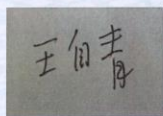 王自青